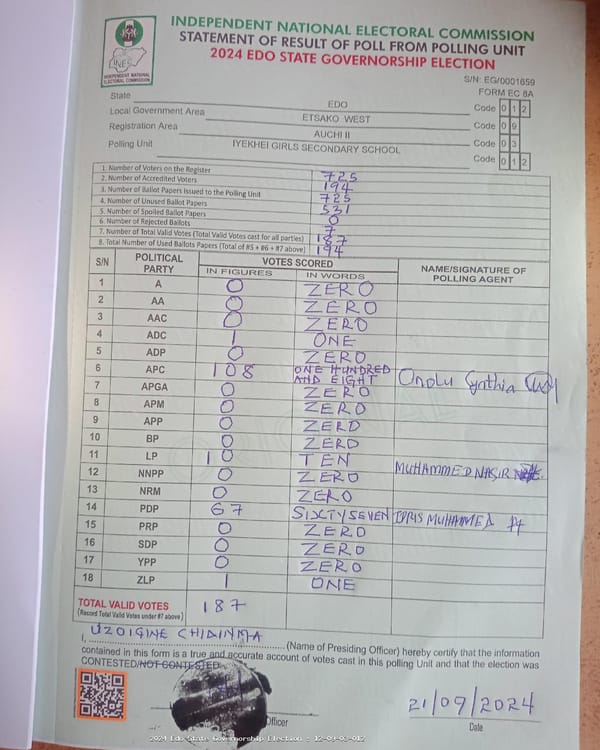 INDEPENDENT NATIONAL ELECTORAL COMMISSION
STATEMENT OF RESULT OF POLL FROM POLLING UNIT
2024 EDO STATE GOVERNORSHIP ELECTION
INEC
INDEPENDENT NATIONAL ELECTORAL COMMISSION
S/N: EG/0001659
FORM EC 8A
State EDO Code 0 1 2
Local Government Area ETSAKO WEST Code 0 9
Registration Area AUCHI II Code 0 3
Polling Unit IYEKHEI GIRLS SECONDARY SCHOOL Code 0 1 2
1. Number of Voters on the Register 725
2. Number of Accredited Voters 194
3. Number of Ballot Papers Issued to the Polling Unit 725
4. Number of Unused Ballot Papers 531
5. Number of Spoiled Ballot Papers 0
6. Number of Rejected Ballots 7
7. Number of Total Valid Votes (Total Valid Votes cast for all parties) 187
8. Total Number of Used Ballots Papers (Total of #5 + #6 + #7 above) 194
S/N POLITICAL PARTY VOTES SCORED NAME/SIGNATURE OF POLLING AGENT
IN FIGURES IN WORDS
1 A 0 ZERO
2 AA 0 ZERO
3 AAC 0 ZERO
4 ADC 1 ONE
5 ADP 0 ZERO
6 APC 108 ONE HUNDRED AND EIGHT Cynthia
7 APGA 0 ZERO
8 APM 0 ZERO
9 APP 0 ZERO
10 BP 0 ZERO
11 LP 10 TEN MUHAMMED NASIR
12 NNPP 0 ZERO
13 NRM 0 ZERO
14 PDP 67 SIXTY SEVEN IDRIS MUHAMMED
15 PRP 0 ZERO
16 SDP 0 ZERO
17 YPP 0 ZERO
18 ZLP 1 ONE
TOTAL VALID VOTES 187
(Record Total Valid Votes under #7 above)
I, UZOIGINE CHIDINMA (Name of Presiding Officer) hereby certify that the information
contained in this form is a true and accurate account of votes cast in this polling Unit and that the election was
CONTESTED/NOT CONTESTED
Officer
21/09/2024
Date
2024 Edo State Governorship Election - 12-09-03-012